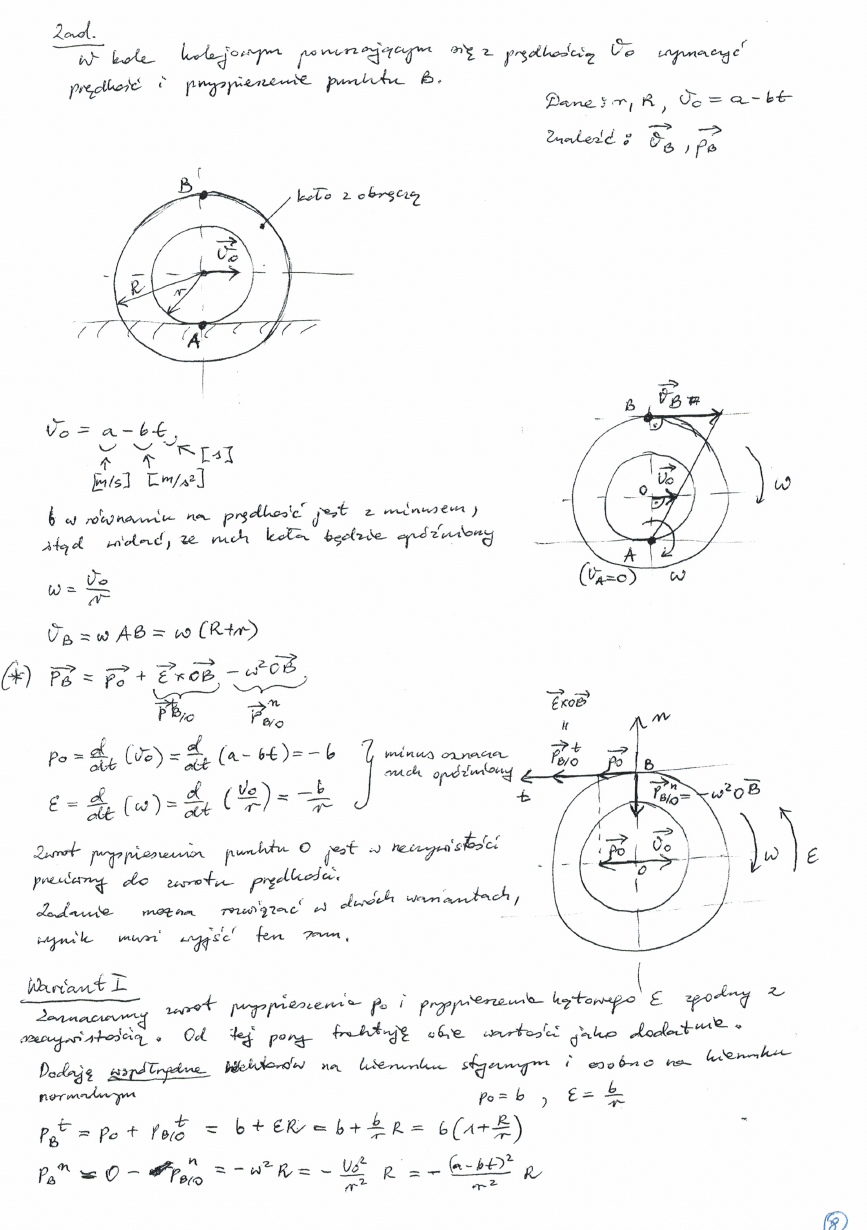 Zad.
W kole kolejowym poruszającym się z prędkością V₀ wyznaczyć
prędkość i przyspieszenie punktu B.
Dane: r, R, V₀ = a - bt
Znaleźć: V⃗_B, p⃗_B
B
koło z obręczą
V⃗₀
R
r
A
V₀ = a - bt,
[s]
[m/s] [m/s²]
b w równaniu na prędkość jest z minusem,
stąd widać, że ruch koła będzie opóźniony
B V⃗_B
O V⃗₀
ω
A
(V_A=0) ω
ω = V₀/r
V_B = ω AB = ω (R+r)
(*) p⃗_B = p⃗₀ + ε⃗×OB⃗ - ω²OB⃗
p⃗_B/O^t p⃗_B/O^n
p₀ = d/dt (V₀) = d/dt (a-bt) = -b
ε = d/dt (ω) = d/dt (V₀/r) = -b/r
minus oznacza
ruch opóźniony
ε⃗×OB⃗
=
p⃗_B/O^t p⃗₀ B
n
t
p⃗_B/O^n = -ω²OB⃗
p⃗₀ V⃗₀
O
ω ε
Zwrot przyspieszenia punktu O jest w rzeczywistości
przeciwny do zwrotu prędkości.
Zadanie można rozwiązać w dwóch wariantach,
wynik musi wyjść ten sam.
Wariant I
Zaznaczamy zwrot przyspieszenia p₀ i przyspieszenia kątowego ε zgodny z
rzeczywistością. Od tej pory traktuję obie wartości jako dodatnie.
Dodaję współrzędne wektorów na kierunku stycznym i osobno na kierunku
normalnym
p₀ = b, ε = b/r
p_B^t = p₀ + p_B/O^t = b + εR = b + b/r R = b(1+R/r)
p_B^n = 0 - p_B/O^n = -ω²R = - V₀²/r² R = - (a-bt)²/r² R
8